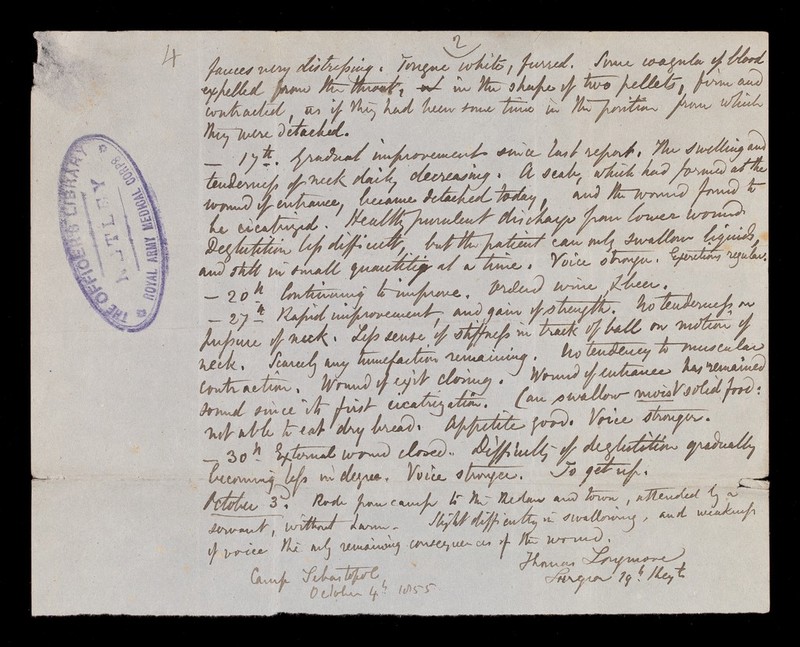 4
2
fauces very distressing. Tongue white, furred. Some coagula of blood
expelled from the throat, in the shape of two pellets, firm and
contracted, as if they had been some time in the position from which
they were detached.
— 17th. Gradual improvement since last report. The swelling and
tenderness of neck daily decreasing. A scab, which had formed at the
wound of entrance, became detached today, and the wound found to
be cicatrized. Healthy purulent discharge from lower wound.
Deglutition less difficult, but the patient can only swallow liquids,
and still in small quantities at a time. Voice stronger. Excretions regular.
— 20th Continuing to improve. Ordered wine & beer.
— 27th Rapid improvement, and gain of strength. No tenderness on
pressure of neck. Less sense of stiffness in track of ball on motion of
neck. Scarcely any tumefaction remaining. No tendency to muscular
contraction. Wound of exit closing. Wound of entrance has remained
sound since its first cicatrization. Can swallow moist solid food:
not able to eat dry bread. Appetite good. Voice stronger.
— 30th External wound closed. Difficulty of deglutition gradually
becoming less in degree. Voice stronger. To get up.
October 3d. Rode from camp to the Redan and town, attended by a
servant, without harm. Slight difficulty in swallowing, and weakness
of voice the only remaining consequences of the wound.
Thomas Longmore
Surgeon 19th Regt
Camp Sebastopol
October 4th 1855
THE OFFICERS LIBRARY
NETLEY
ROYAL ARMY MEDICAL CORPS